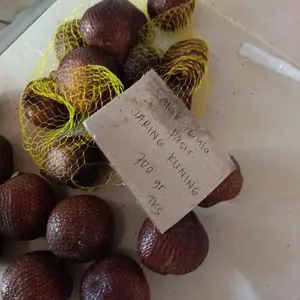 Salak Gula
Pasir
JARING KUNING
700 gr
TKS